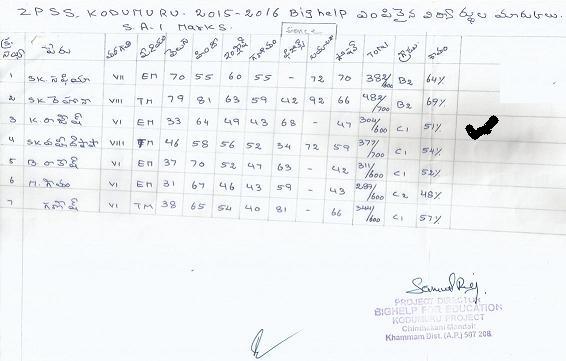 ZPSS, KODUMURU. 2015-2016 Bighelp ఎంపికైన విద్యార్థుల మార్కులు.
S.A-I Marks.
క్ర. సంఖ్య పేరు తరగతి మీడియం తెలుగు హిందీ ఇంగ్లీష్ గణితం Science సోషల్ TOTAL గ్రేడు శాతం
1 SK. VII EM 70 55 60 55 - 72 70 382/600 B2 64%
2 SK VIII TM 79 81 63 59 42 92 66 482/700 B2 69%
3 K. VI EM 33 64 49 43 68 - 47 304/600 C1 51%
4 SK VIII TM 46 58 56 52 34 72 59 377/700 C1 54%
5 B. VI EM 37 70 52 47 63 - 42 311/600 C1 52%
6 M. గౌతం VI EM 31 67 46 43 59 - 43 289/600 C2 48%
7 గణేష్ VI TM 38 65 54 40 81 - 66 344/600 C1 57%
PROJECT DIRECTOR
BIGHELP FOR EDUCATION
KODUMURU PROJECT
Chinthakani Mandal:
Khammam Dist. (A.P.) 507 208.